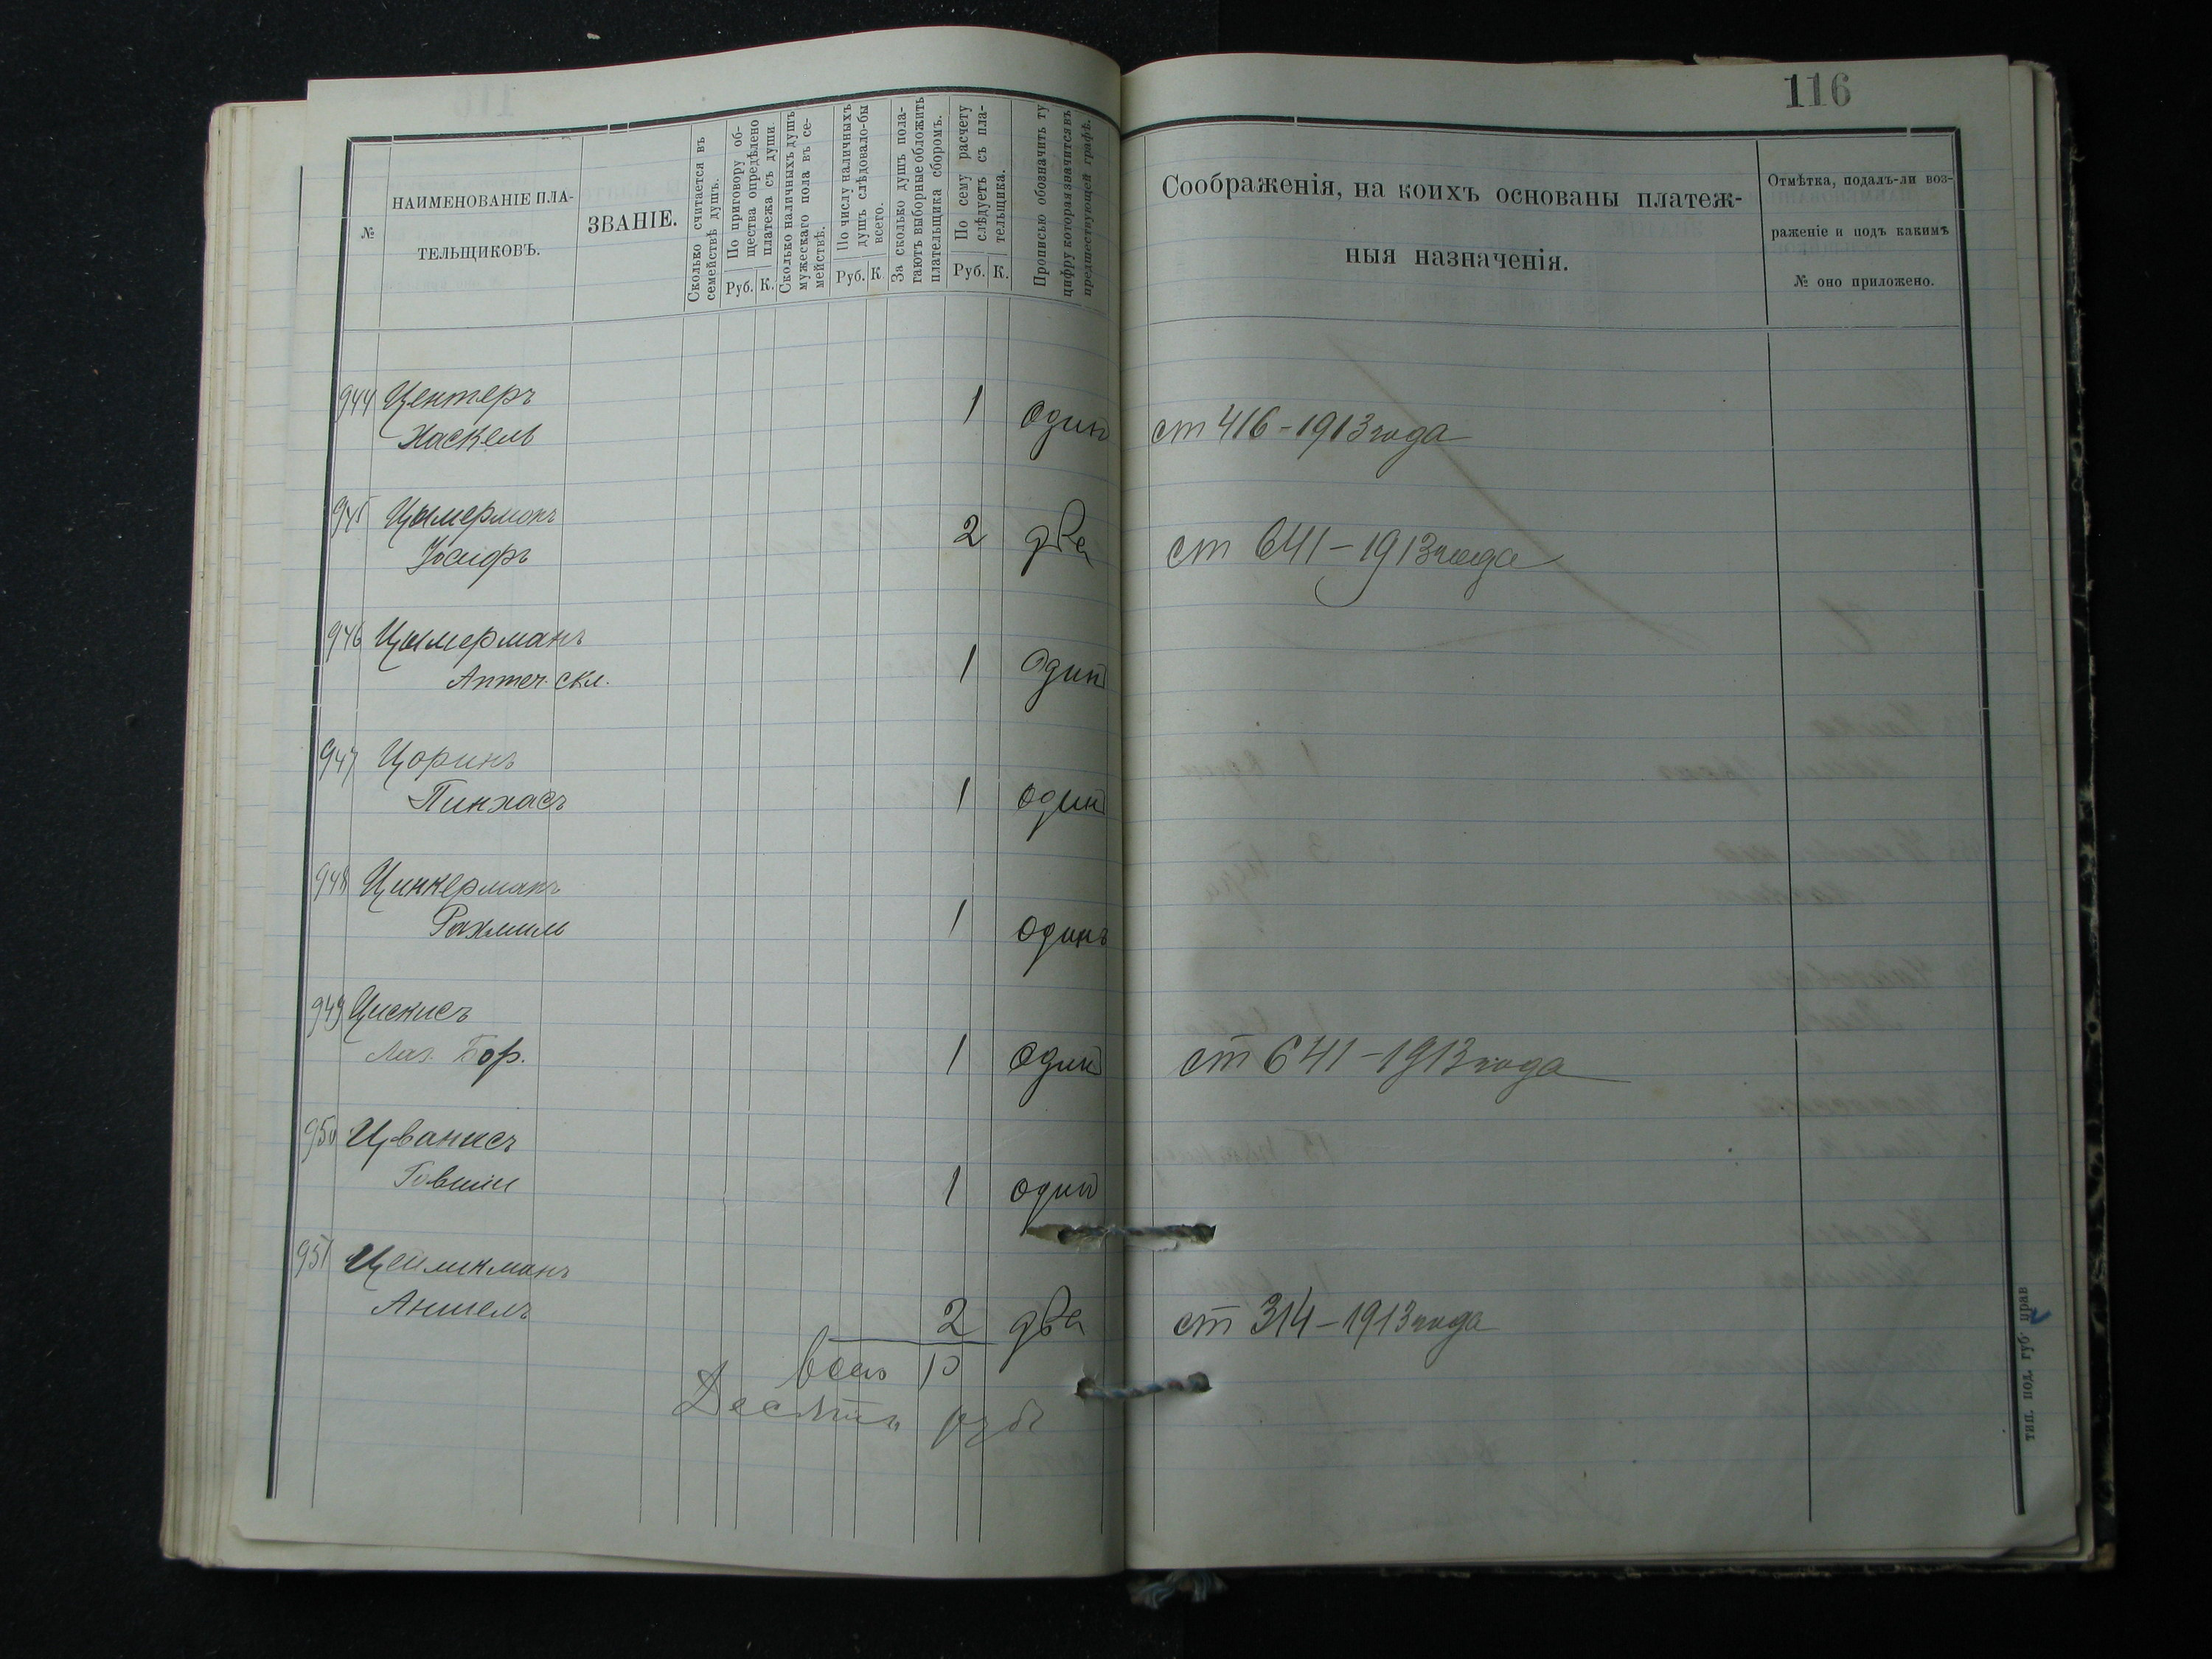 116
№
НАИМЕНОВАНІЕ ПЛА-
ТЕЛЬЩИКОВЪ.
ЗВАНІЕ.
Сколько считается въ
семействѣ душъ.
По приговору об-
щества опредѣлено
платежа съ души.
Руб. К.
Сколько наличныхъ душъ
мужескаго пола въ се-
мействѣ.
По числу наличныхъ
душъ слѣдовало-бы
всего.
Руб. К
За сколько душъ пола-
гаютъ выборные обложить
плательщика сборомъ.
По сему расчету
слѣдуетъ съ пла-
тельщика.
Руб. К.
Прописью обозначить ту
цифру которая значится въ
предшествующей графѣ.
Соображенія, на коихъ основаны платеж-
ныя назначенія.
Отмѣтка, подалъ-ли воз-
раженіе и подъ какимъ
№ оно приложено.
944 Центеръ
Хаскель 1 один ст 416-1913 года
945 Цымерманъ
Іосифъ 2 два ст 641-1913 года
946 Цымерманъ
Аптеч. скл. 1 один
947 Цоринъ
Пинхасъ 1 один
948 Цинкерманъ
Рахмиль 1 одинъ
949 Цискисъ
Лаз. Бор. 1 один ст 641-1913 года
950 Цванисъ
Говшии 1 один
951 Цейликманъ
Аншелъ 2 два ст 314-1913 года
всего 10
Десять руб
тип. под. губ. прав